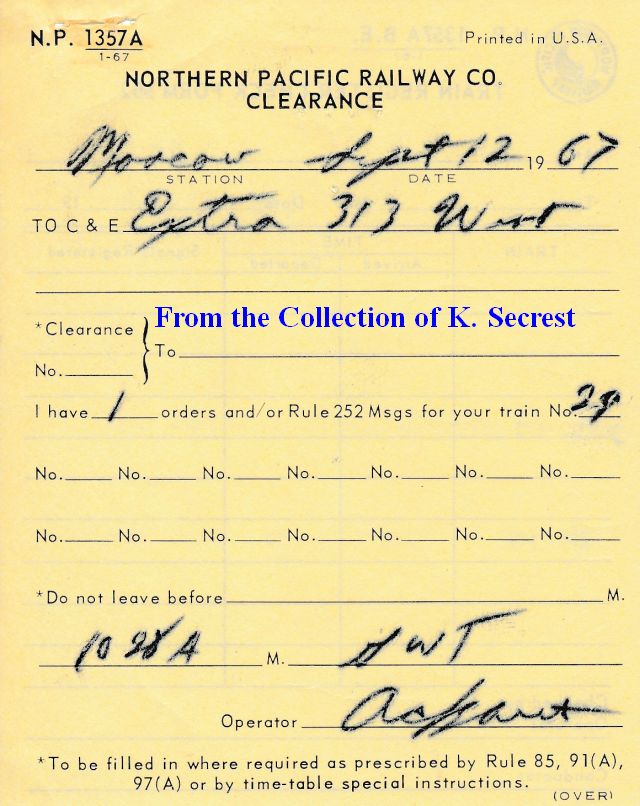 N.P. 1357A Printed in U.S.A.
1-67
NORTHERN PACIFIC RAILWAY CO.
CLEARANCE
Moscow Sept 12 19 67
STATION DATE
TO C & E Extra 313 West
From the Collection of K. Secrest
*Clearance
To
No.
I have 1 orders and/or Rule 252 Msgs for your train No. 29
No. No. No. No. No. No. No.
No. No. No. No. No. No. No.
*Do not leave before M.
10 28 A M. GWT
Operator
*To be filled in where required as prescribed by Rule 85, 91(A),
97(A) or by time-table special instructions.
(OVER)